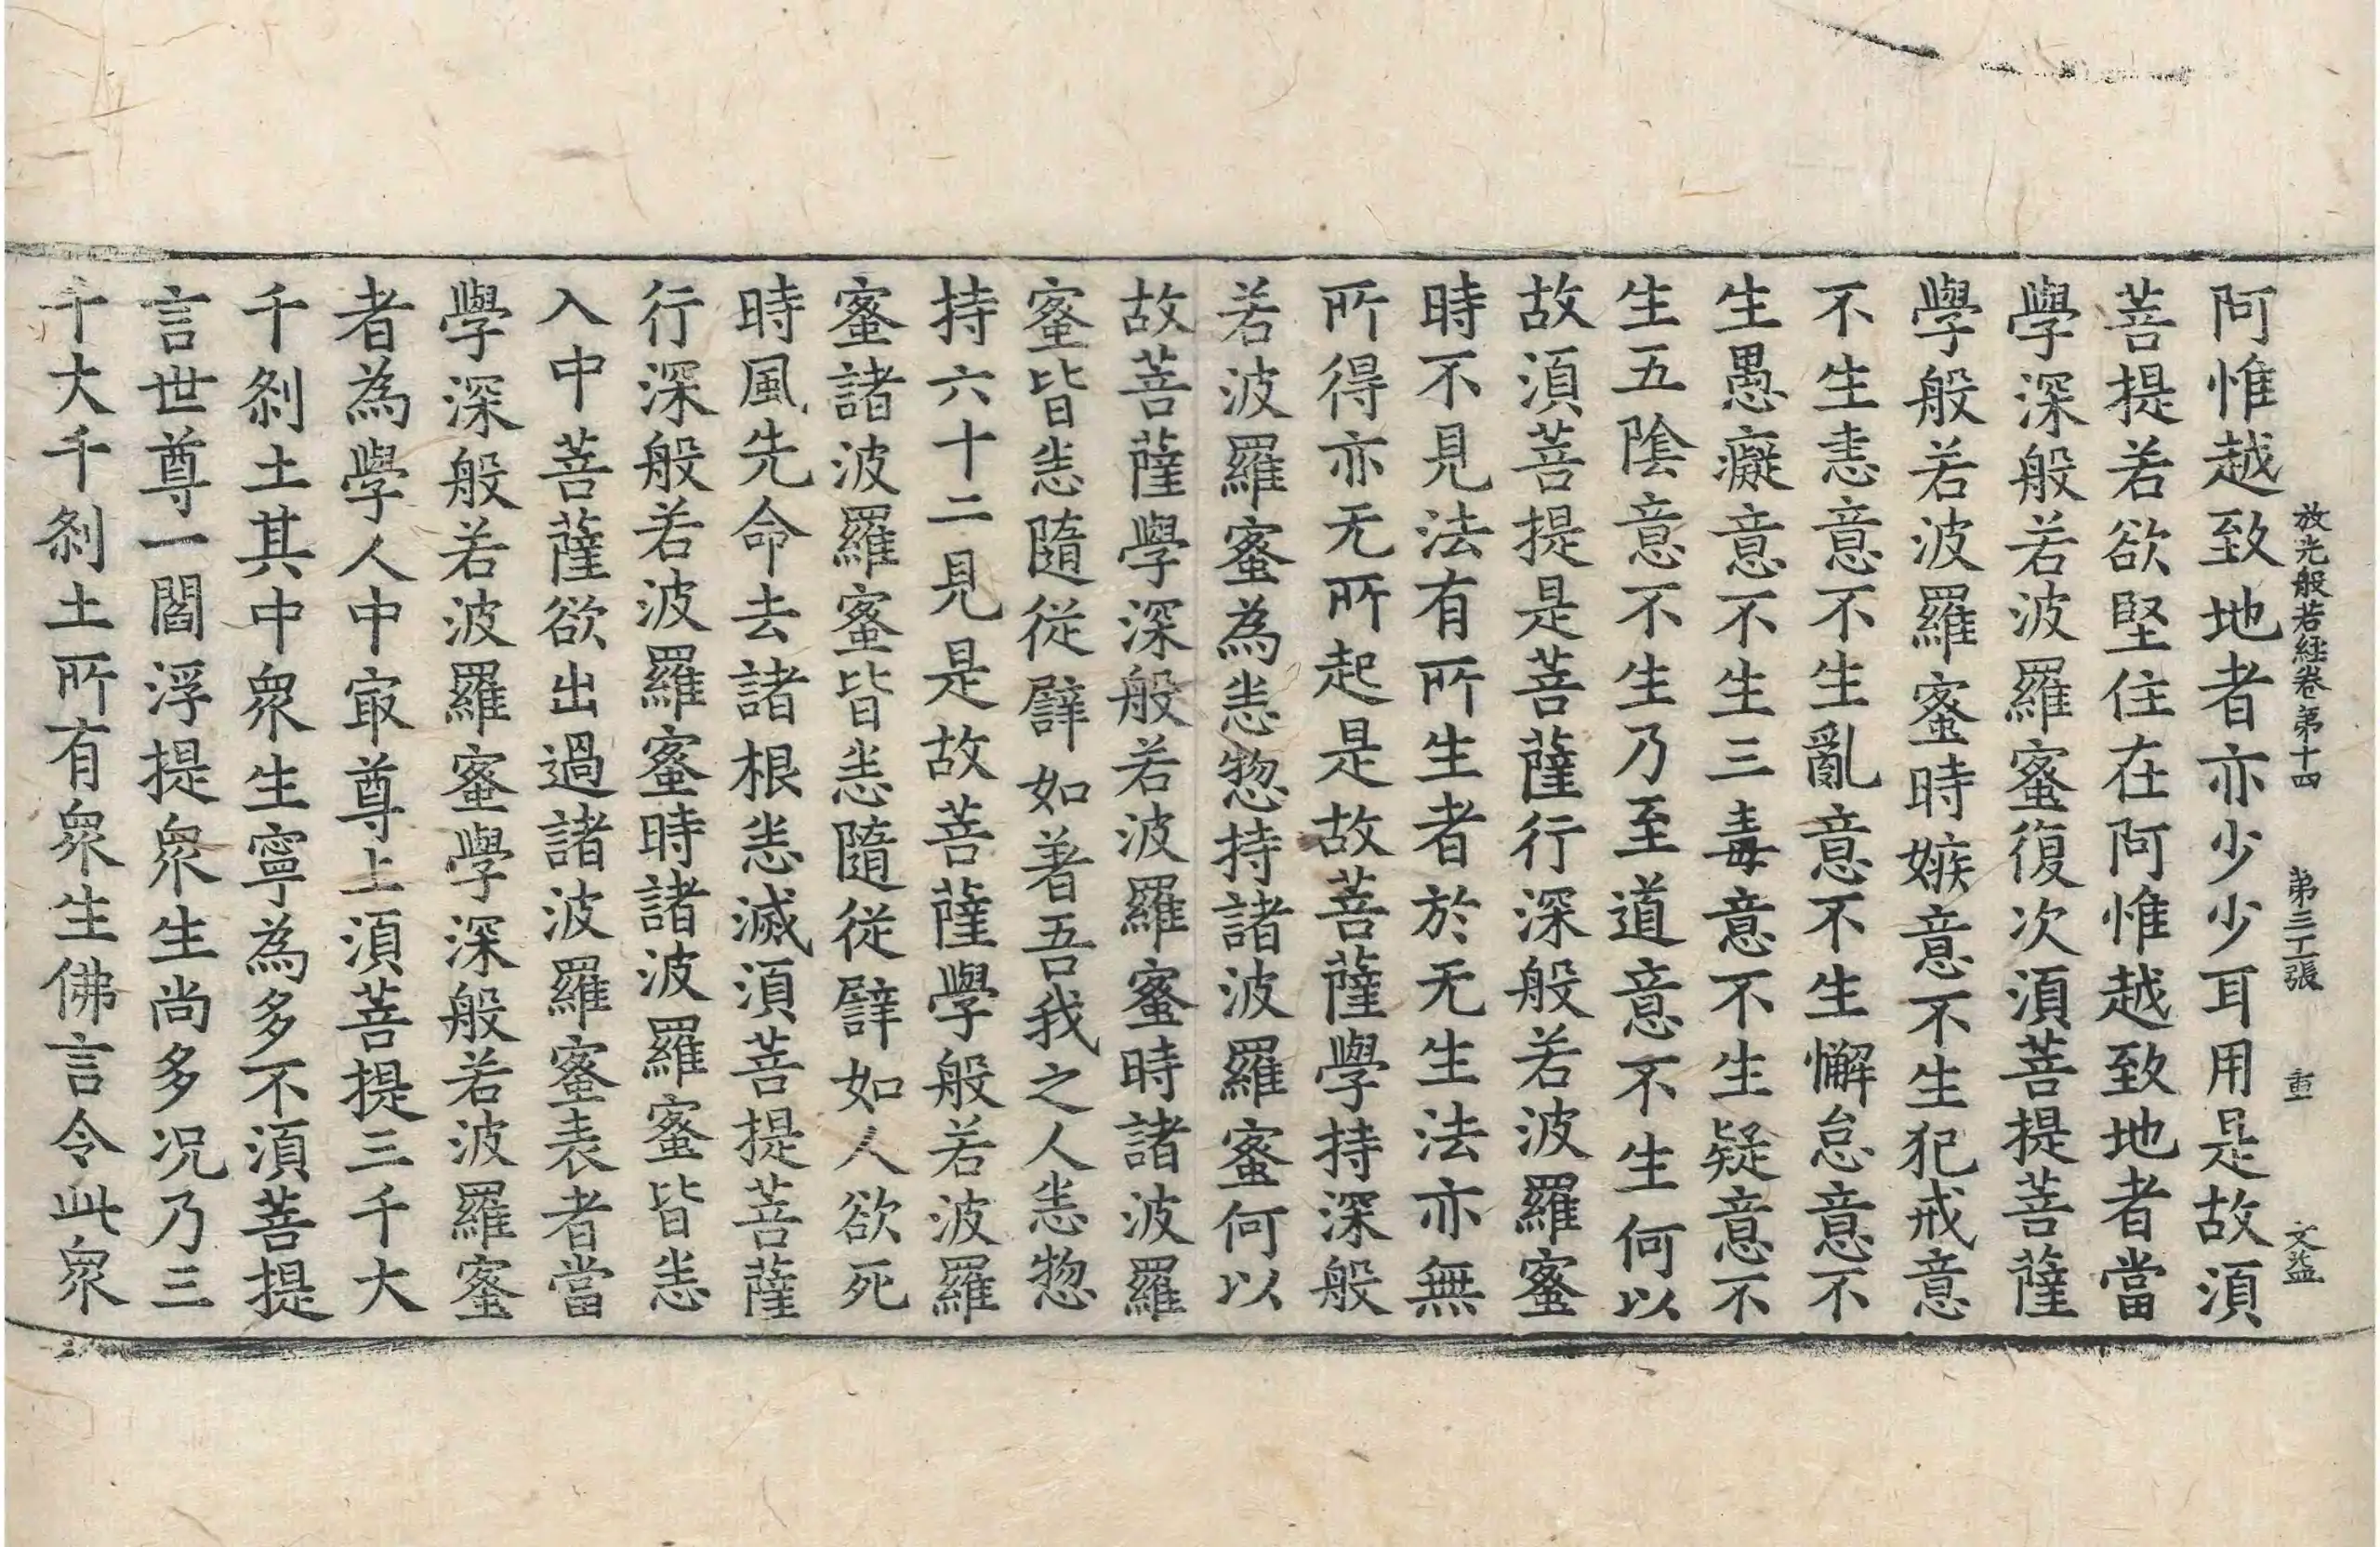 放光般若経卷第十四 第三工張 重 文益
阿惟越致地者亦少少耳用是故湏
菩提若欲堅住在阿惟越致地者當
學深般若波羅蜜復次湏菩提菩薩
學般若波羅蜜時嫉意不生犯戒意
不生恚意不生亂意不生懈怠意不
生愚癡意不生三毒意不生疑意不
生五陰意不生乃至道意不生何以
故湏菩提是菩薩行深般若波羅蜜
時不見法有所生者於无生法亦無
所得亦无所起是故菩薩學持深般
若波羅蜜為恙惣持諸波羅蜜何以
故菩薩學深般若波羅蜜時諸波羅
蜜皆恙隨從譬如著吾我之人恙惣
持六十二見是故菩薩學般若波羅
蜜諸波羅蜜皆恙隨從譬如人欲死
時風先命去諸根恙滅湏菩提菩薩
行深般若波羅蜜時諸波羅蜜皆恙
入中菩薩欲出過諸波羅蜜表者當
學深般若波羅蜜學深般若波羅蜜
者為學人中㝡尊上湏菩提三千大
千刹土其中衆生寧為多不湏菩提
言世尊一閻浮提衆生尚多况乃三
千大千刹土所有衆生佛言令此衆